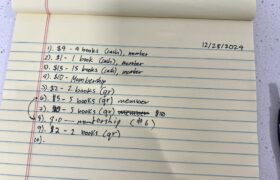 12/28/2024
1). $9 - 9 books (cash), member
2). $1 - 1 book (cash), member
3). $15 - 15 books (cash), member
4). $10 - Membership
5). $2 - 2 books (qr)
6). $5 - 5 books (qr) member
7). - 5 books (qr) member $10
8). - membership (# 6)
9). $2 - 2 books (qr)
10).